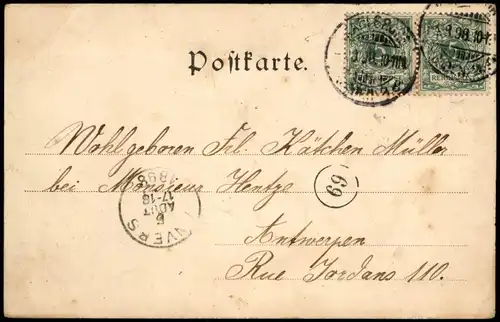 Postkarte.
Wohlgeboren Frl. Käthchen Müller
bei Monsieur Hentze
69
Antwerpen
Rue Jordans 110.
ANVERS
5
AOUT
17-18
1898
REICHSPOST